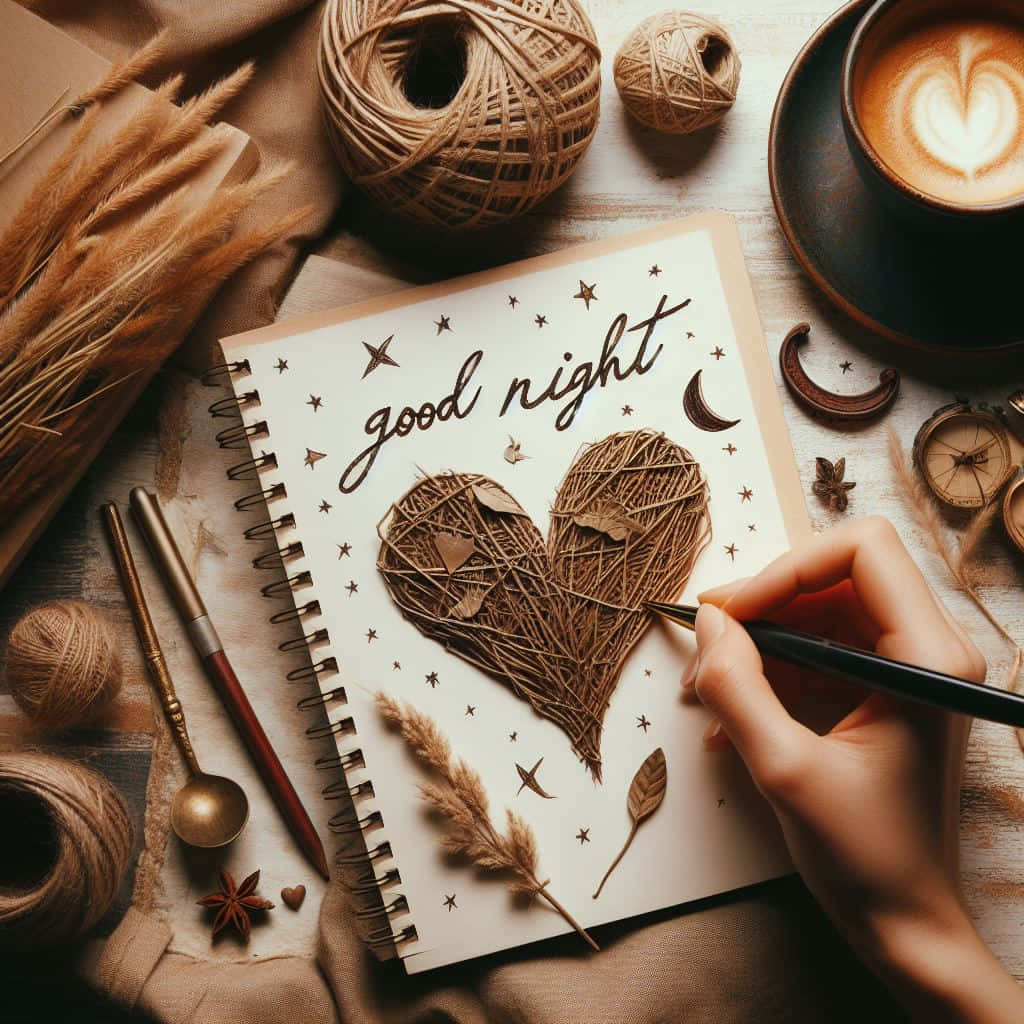 good night